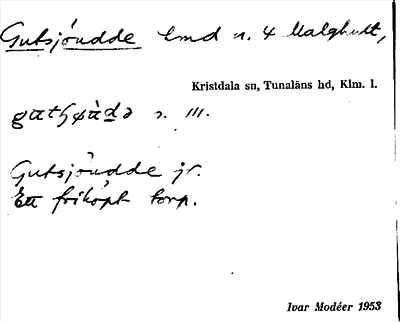 Gutsjöudde lmd n. 4 Malghult,
Kristdala sn, Tunaläns hd, Klm. l.
2. III.
Gutsjöudde jr.
Ett friköpt torp.
Ivar Modéer 1953